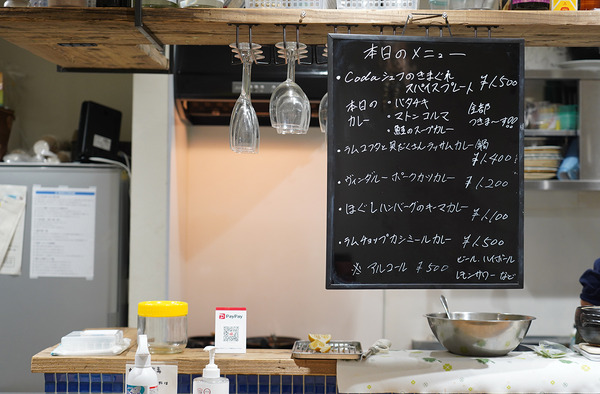 本日のメニュー
・Codaシェフのきまぐれ
スパイスプレート ¥1,500
本日の
カレー
・バタチキ
・マトンコルマ
・鮭のスープカレー
全部
つきま〜す!!
・ラムコフタと具だくさんラッサムカレー鍋
¥1,400
・ヴィンダルーポークカツカレー ¥1,200
・ほぐしハンバーグのキーマカレー ¥1,100
・ラムチョップカシミールカレー ¥1,500
※ アルコール ¥500
ビール、ハイボール
レモンサワー など
PayPay